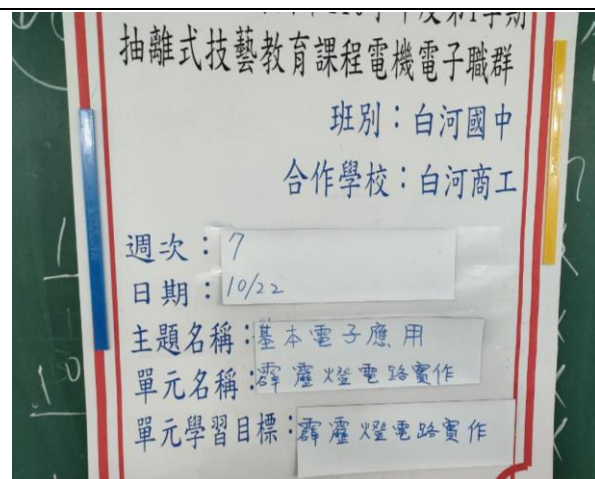 第1學期
抽離式技藝教育課程電機電子職群
班別：白河國中
合作學校：白河商工
週次：7
日期：10/22
主題名稱：基本電子應用
單元名稱：霹靂燈電路實作
單元學習目標：霹靂燈電路實作